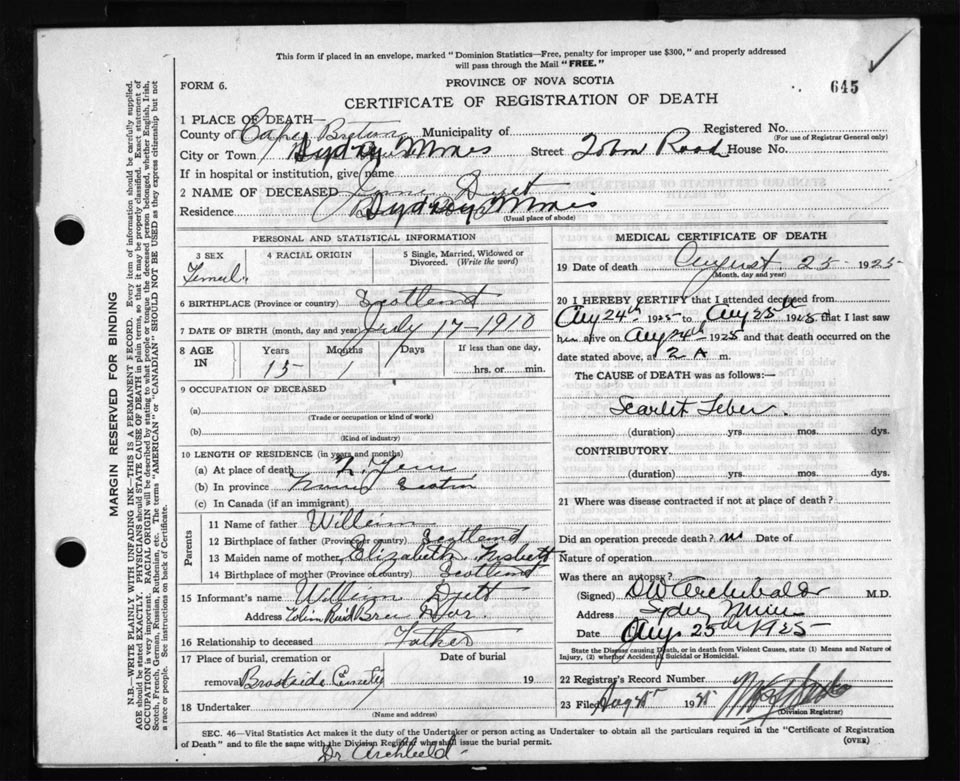 This form if placed in an envelope, marked "Dominion Statistics—Free, penalty for improper use $300," and properly addressed
will pass through the Mail "FREE."
FORM 6.
PROVINCE OF NOVA SCOTIA
645
CERTIFICATE OF REGISTRATION OF DEATH
1 PLACE OF DEATH—
County of Cape Breton Municipality of Registered No.
(For use of Registrar General only)
City or Town Sydney Mines Street Tobin Road House No.
If in hospital or institution, give name
2 NAME OF DECEASED Dyet
Residence Sydney Mines
(Usual place of abode)
PERSONAL AND STATISTICAL INFORMATION
3 SEX
4 RACIAL ORIGIN
5 Single, Married, Widowed or Divorced. (Write the word)
Femal
6 BIRTHPLACE (Province or country) Scotland
7 DATE OF BIRTH (month, day and year) July 17-1910
8 AGE IN
Years Months Days If less than one day,
15 1 7 hrs. or min.
9 OCCUPATION OF DECEASED
(a)
(Trade or occupation or kind of work)
(b)
(Kind of industry)
10 LENGTH OF RESIDENCE (in years and months)
(a) At place of death
(b) In province
(c) In Canada (if an immigrant)
Parents
11 Name of father William
12 Birthplace of father (Province or country) Scotland
13 Maiden name of mother Elizabeth Nisbett
14 Birthplace of mother (Province or country) Scotland
15 Informant's name William Dyett
Address
16 Relationship to deceased Father
17 Place of burial, cremation or Date of burial
removal Brookside 19
18 Undertaker
(Name and address)
MEDICAL CERTIFICATE OF DEATH
19 Date of death August 25 1925
(Month, day and year)
20 I HEREBY CERTIFY that I attended deceased from
Aug 24th 1925 to Aug 25th 1925 that I last saw
her alive on Aug 24th 1925 and that death occurred on the
date stated above, at 2 A m.
The CAUSE of DEATH was as follows:
Scarlet Fever.
(duration) yrs. mos. dys.
CONTRIBUTORY
(duration) yrs. mos. dys.
21 Where was disease contracted if not at place of death?
Did an operation precede death? no Date of
Nature of operation
Was there an autopsy?
(Signed) DW Archibald M.D.
Address Sydney Mines
Date Aug 25th 1925
State the Disease causing Death, or in death from Violent Causes, state (1) Means and Nature of
Injury, (2) whether Accidental, Suicidal or Homicidal.
22 Registrar's Record Number
23 Filed 19
(Division Registrar)
SEC. 46—Vital Statistics Act makes it the duty of the Undertaker or person acting as Undertaker to obtain all the particulars required in the "Certificate of Registration
of Death" and to file the same with the Division Registrar who shall issue the burial permit.
(OVER)
Dr Archibald
MARGIN RESERVED FOR BINDING
N.B.—WRITE PLAINLY WITH UNFADING INK—THIS IS A PERMANENT RECORD. Every item of information should be carefully supplied.
AGE should be stated EXACTLY. PHYSICIANS should STATE CAUSE OF DEATH in plain terms, so that it may be properly classified. Exact statement of
OCCUPATION is very important. RACIAL ORIGIN will be described by stating to what people or tongue the deceased person belonged, whether English, Irish,
Scotch, French, German, Russian, Ruthenian, etc. The terms "AMERICAN" or "CANADIAN" SHOULD NOT BE USED as they express citizenship but not
a race or people. See instructions on back of Certificate.